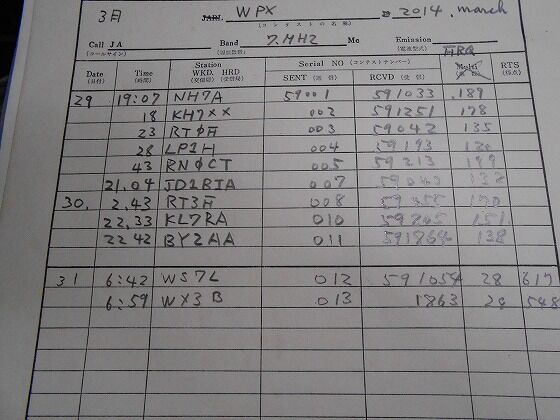 3月 WPX 2014. march
(コンテストの名称)
Call JA Band 7.MHz Mc Emission
(コールサイン) (周波数帯) (電波型式)
Date Time Station Serial NO (コンテストナンバー) RTS
(日付) (時間) WKD. HRD SENT (送信) RCVD (受信) (得点)
29 19:07 NH7A 59001 591033 .189
18 KH7XX 002 591251 178
23 RTØA 003 59042 135
28 LP1H 004 59193
43 RNØCT 005 59213 199
21.04 JD1BIA 007 132
30. 2.43 RT3A 008
22.33 KL7RA 010 151
22 42 BY2AA 011 591864 138
31 6:42 WS7L 012 591054 28 617
6:59 WX3B 013 1863 24 548